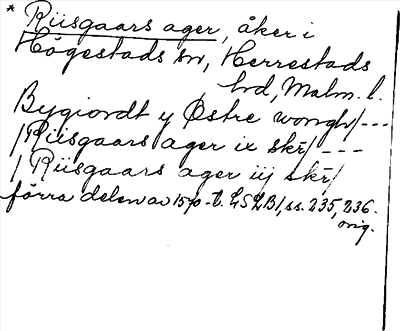 * Riisgaars ager, åker i
Högestads sn, Herrestads
hd, Malm. l.
Bygiordt y Østre wongh/---
/Riisgaars ager ix skr/ ---
/Riisgaars ager iij skr/
förra delen av 15/0-t. LSLB1, ss. 235, 236.
orig.